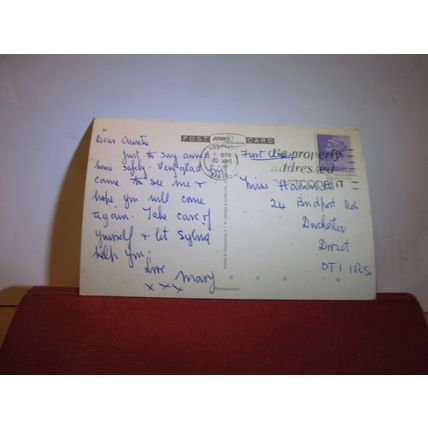 POST CARD
Dear Auntie
Just to say arrived
home safely. Very glad you
came to see me &
hope you will come
again. Take care of
yourself & let Sylvia
help you.
Love
Mary
x x x
First Class
Be properly
addressed
POSTCODE IT
Miss
24 Bridport Rd
Dorchester
Dorset
DT1